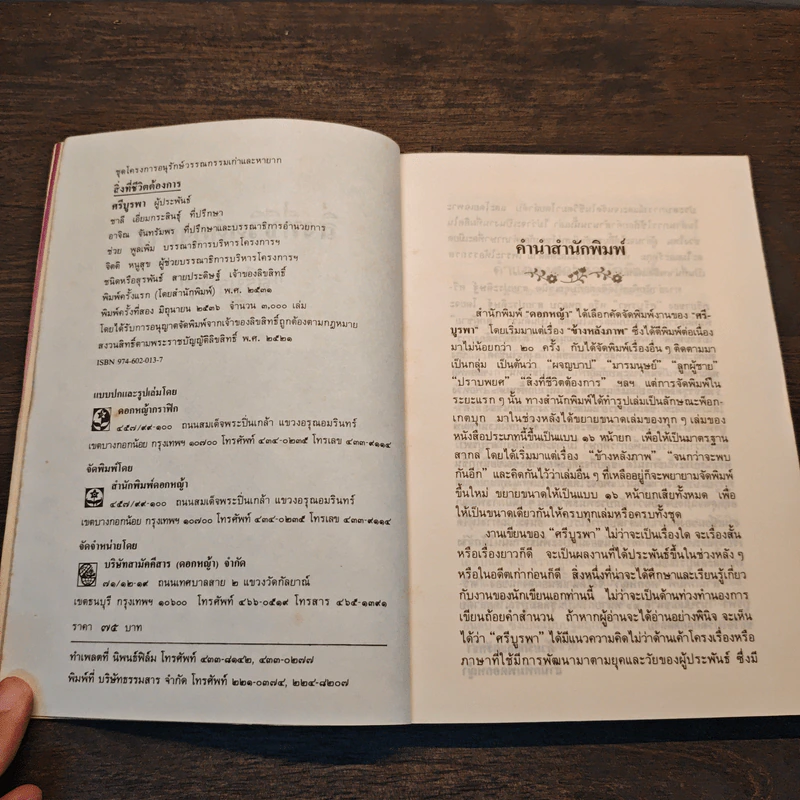 ชุดโครงการอนุรักษ์วรรณกรรมเก่าและหายาก
สิ่งที่ชีวิตต้องการ
ศรีบูรพา ผู้ประพันธ์
ชาลี เอี่ยมกระสินธุ์ ที่ปรึกษา
อาจิณ จันทรัมพร ที่ปรึกษาและบรรณาธิการอำนวยการ
ช่วย พูลเพิ่ม บรรณาธิการบริหารโครงการฯ
จิตติ หนูสุข ผู้ช่วยบรรณาธิการบริหารโครงการฯ
ชนิดหรือสุรพันธ์ สายประดิษฐ์ เจ้าของลิขสิทธิ์
พิมพ์ครั้งแรก (โดยสำนักพิมพ์) พ.ศ. ๒๕๓๑
พิมพ์ครั้งที่สอง มิถุนายน ๒๕๓๖ จำนวน ๓,๐๐๐ เล่ม
โดยได้รับการอนุญาตจัดพิมพ์จากเจ้าของลิขสิทธิ์ถูกต้องตามกฎหมาย
สงวนสิทธิ์ตามพระราชบัญญัติลิขสิทธิ์ พ.ศ. ๒๕๒๑
ISBN 974-602-013-7
แบบปกและรูปเล่มโดย
ดอกหญ้ากราฟิก
๔๕๗/๙๙-๑๐๐ ถนนสมเด็จพระปิ่นเกล้า แขวงอรุณอมรินทร์
เขตบางกอกน้อย กรุงเทพฯ ๑๐๗๐๐ โทรศัพท์ ๔๓๔-๐๒๓๕ โทรเลข ๔๓๓-๙๑๑๔
จัดพิมพ์โดย
สำนักพิมพ์ดอกหญ้า
๔๕๗/๙๙-๑๐๐ ถนนสมเด็จพระปิ่นเกล้า แขวงอรุณอมรินทร์
เขตบางกอกน้อย กรุงเทพฯ ๑๐๗๐๐ โทรศัพท์ ๔๓๔-๐๒๓๕ โทรเลข ๔๓๓-๙๑๑๔
จัดจำหน่ายโดย
บริษัทสามัคคีสาร (ดอกหญ้า) จำกัด
๗๑/๑๒-๑๙ ถนนเทศบาลสาย ๒ แขวงวัดกัลยาณ์
เขตธนบุรี กรุงเทพฯ ๑๐๖๐๐ โทรศัพท์ ๔๖๖-๐๕๑๙ โทรสาร ๔๖๕-๑๓๙๑
ราคา ๗๕ บาท
ทำเพลตที่ นิพนธ์ฟิล์ม โทรศัพท์ ๔๓๓-๘๑๔๒, ๔๓๓-๐๒๗๗
พิมพ์ที่ บริษัทธรรมสาร จำกัด โทรศัพท์ ๒๒๑-๐๓๗๔, ๒๒๔-๘๒๐๗
คำนำสำนักพิมพ์
สำนักพิมพ์ "ดอกหญ้า" ได้เลือกคัดจัดพิมพ์งานของ "ศรี-
บูรพา" โดยเริ่มมาแต่เรื่อง "ข้างหลังภาพ" ซึ่งได้ตีพิมพ์ต่อเนื่อง
มาไม่น้อยกว่า ๒๐ ครั้ง กับได้จัดพิมพ์เรื่องอื่น ๆ ติดตามมา
เป็นกลุ่ม เป็นต้นว่า "ผจญบาป" "มารมนุษย์" "ลูกผู้ชาย"
"ปราบพยศ" "สิ่งที่ชีวิตต้องการ" ฯลฯ แต่การจัดพิมพ์ใน
ระยะแรก ๆ นั้น ทางสำนักพิมพ์ได้ทำรูปเล่มเป็นลักษณะพ็อก-
เกตบุก มาในช่วงหลังได้ขยายขนาดเล่มของทุก ๆ เล่มของ
หนังสือประเภทนี้ขึ้นเป็นแบบ ๑๖ หน้ายก เพื่อให้เป็นมาตรฐาน
สากล โดยได้เริ่มมาแต่เรื่อง "ข้างหลังภาพ" "จนกว่าจะพบ
กันอีก" และคิดกันไว้ว่าเล่มอื่น ๆ ที่เหลืออยู่ก็จะพยายามจัดพิมพ์
ขึ้นใหม่ ขยายขนาดให้เป็นแบบ ๑๖ หน้ายกเสียทั้งหมด เพื่อ
ให้เป็นขนาดเดียวกันให้ครบทุกเล่มหรือครบทั้งชุด
งานเขียนของ "ศรีบูรพา" ไม่ว่าจะเป็นเรื่องใด จะเรื่องสั้น
หรือเรื่องยาวก็ดี จะเป็นผลงานที่ได้ประพันธ์ขึ้นในช่วงหลัง ๆ
หรือในอดีตเก่าก่อนก็ดี สิ่งหนึ่งที่น่าจะได้ศึกษาและเรียนรู้เกี่ยว
กับงานของนักเขียนเอกท่านนี้ ไม่ว่าจะเป็นด้านท่วงทำนองการ
เขียนถ้อยคำสำนวน ถ้าหากผู้อ่านจะได้อ่านอย่างพินิจ จะเห็น
ได้ว่า "ศรีบูรพา" ได้มีแนวความคิดไม่ว่าด้านเค้าโครงเรื่องหรือ
ภาษาที่ใช้มีการพัฒนามาตามยุคและวัยของผู้ประพันธ์ ซึ่งมี